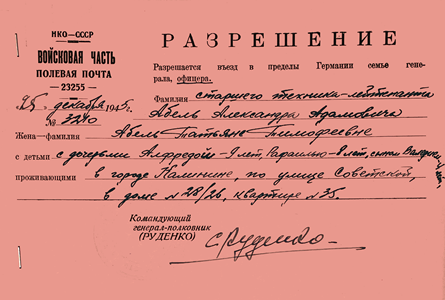 НКО—СССР
ВОЙСКОВАЯ ЧАСТЬ
ПОЛЕВАЯ ПОЧТА
— 23255 —
25 декабря 1945 г.
№ 3240
РАЗРЕШЕНИЕ
Разрешается въезд в пределы Германии семье гене-
рала, офицера.
Фамилия старшего техника-лейтенанта
Абель Александра Адамовича
Жена—фамилия Абель Татьяне Тимофеевне
с детьми с дочерьми Алфредой - 9 лет, 8 лет, сын
проживающими в городе Калинине, по улице Советской,
в доме № 28/26, квартире № 35.
Командующий
генерал-полковник
(РУДЕНКО)
С Руденко